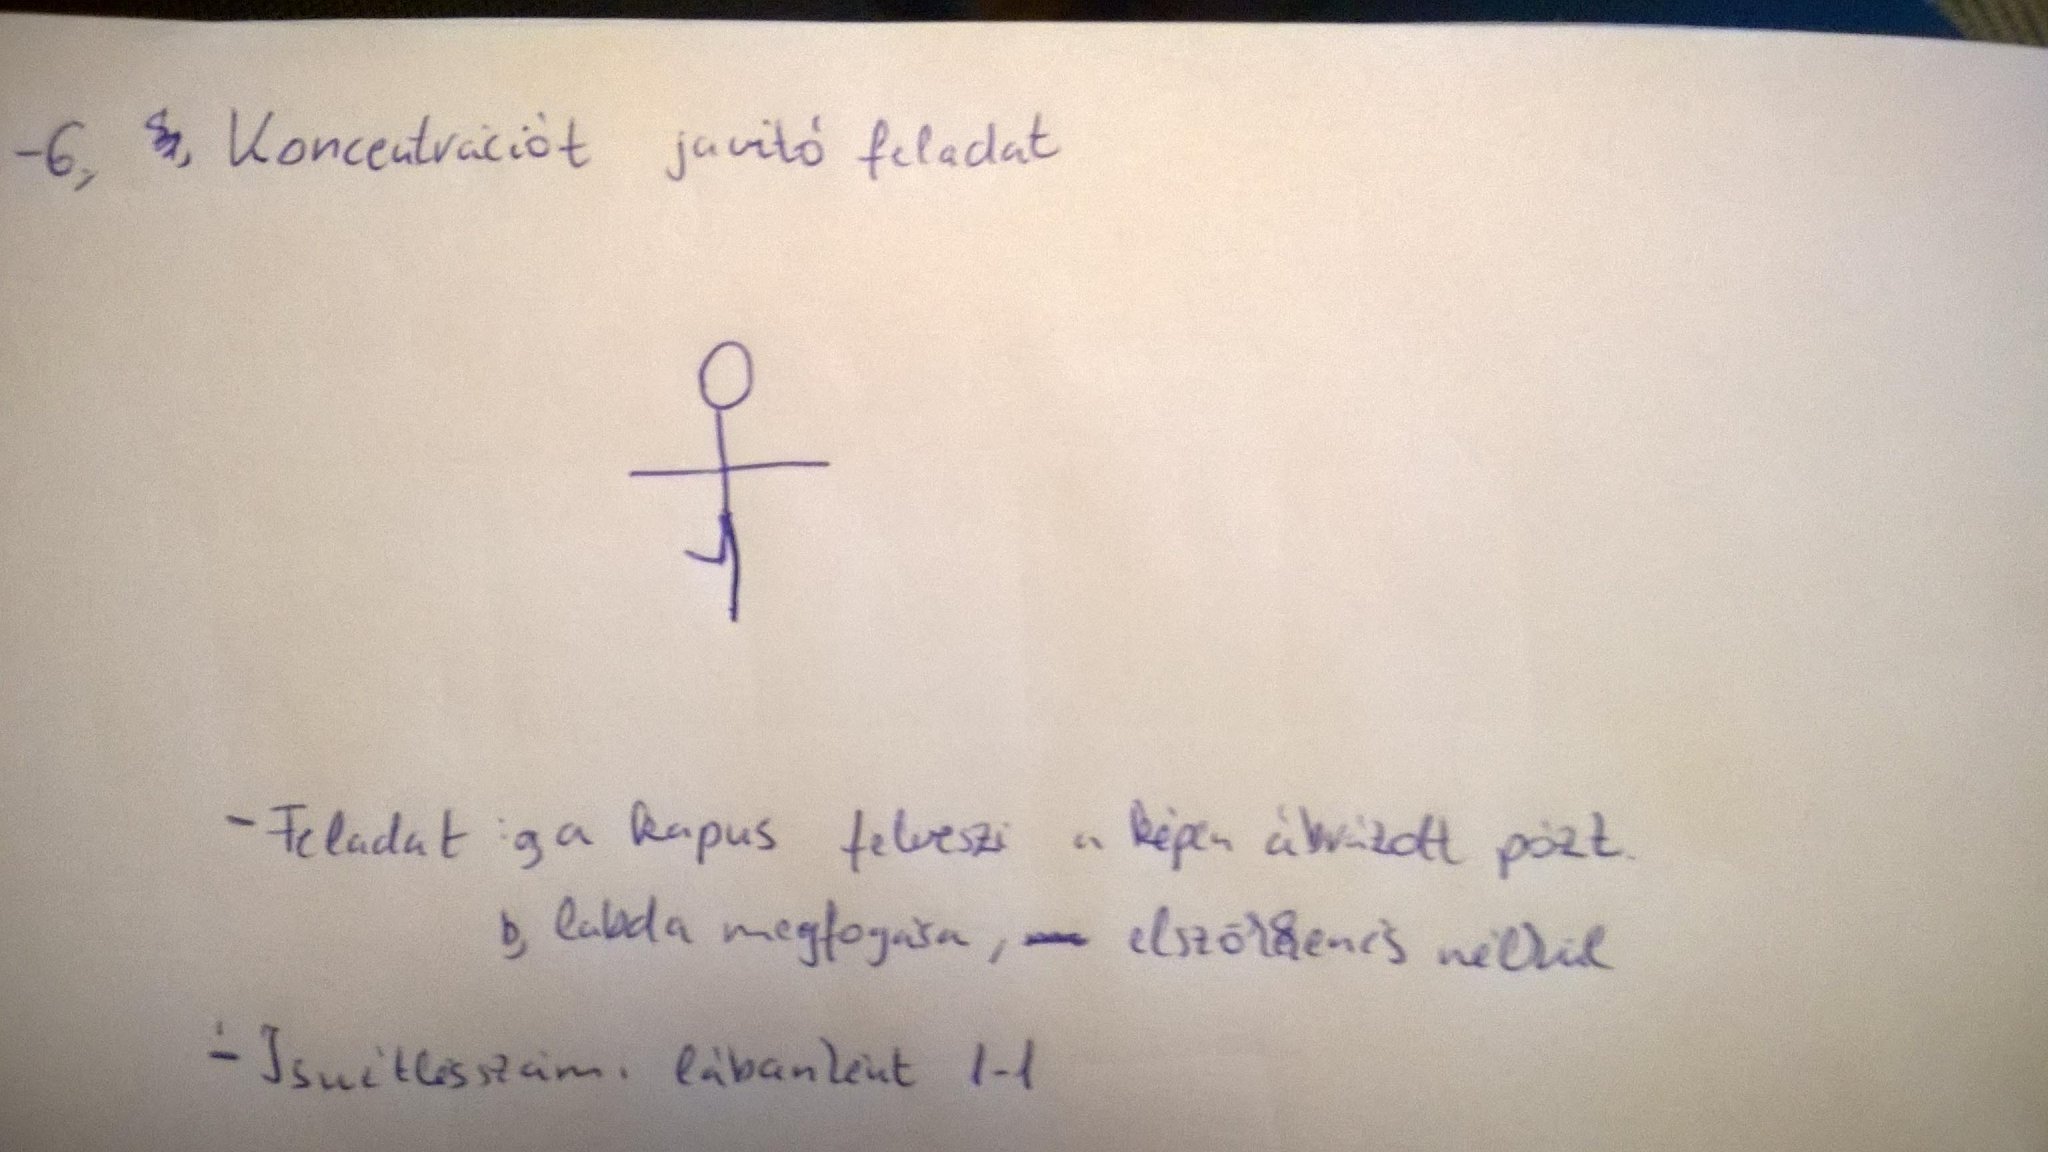 -6, Koncentrációt javító feladat
- Feladat : a, a kapus felveszi a képen ábrázolt pózt.
b, labda megfogása, nélkül
- Ismétlésszám: lábanként 1-1